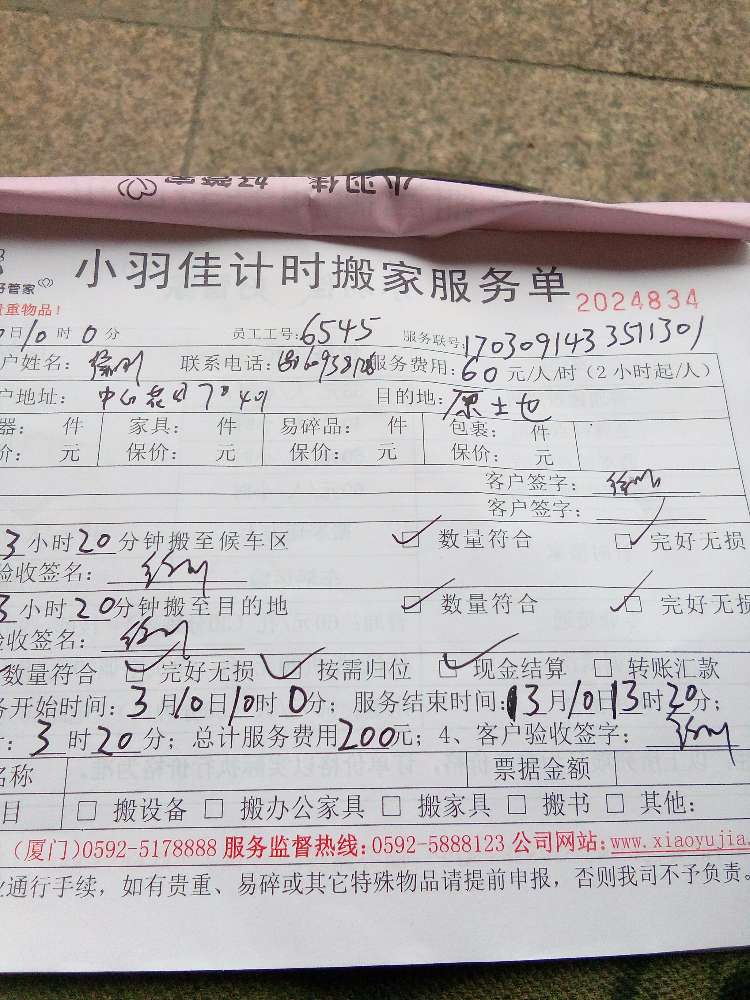 小羽佳 好管家
小羽佳计时搬家服务单 2024834
好管家
贵重物品!
日10时0分 员工工号:6545 服务联号:1703091433511301
户姓名: 联系电话: 服务费用:60元/人/时(2小时起/人)
户地址: 目的地:原土也
器: 件 家具: 件 易碎品: 件 包裹: 件
价: 元 保价: 元 保价: 元 保价: 元
客户签字:
客户签字:
3小时20分钟搬至候车区 ☑ 数量符合 ☑ 完好无损
验收签名:
3小时20分钟搬至目的地 ☑ 数量符合 ☑ 完好无损
验收签名:
数量符合 ☑ 完好无损 ☑ 按需归位 ☑ 现金结算 □ 转账汇款
务开始时间:3月10日10时0分;服务结束时间:3月10日13时20分;
:3时20分;总计服务费用200元;4、客户验收签字:
名称 票据金额
目 □ 搬设备 □ 搬办公家具 □ 搬家具 □ 搬书 □ 其他:
(厦门)0592-5178888 服务监督热线:0592-5888123 公司网站:www.xiaoyujia.
业通行手续,如有贵重、易碎或其它特殊物品请提前申报,否则我司不予负责。